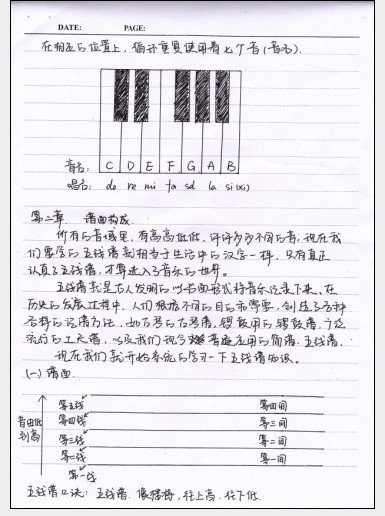 DATE: PAGE:
在相应的位置上,循环重复使用着七个音(音名).
音名: C D E F G A B
唱名: do re mi fa sol la si(xi)
第二章 谱面构成.
所有的音域里,有高高低低、许许多多不同的音,现在我
们要学的五线谱就相当于生活中的汉字一样,只有真正
认真学五线谱,才算进入了音乐的世界。
五线谱就是古人发明的以书面形式将音乐记录下来,在
历史的发展过程中,人们根据不同的目的和需要,创造了各种
各样的记谱方法,如古琴的古琴谱,锣鼓用的锣鼓谱,广泛
流行的工尺谱,以及我们现今普遍应用的简谱、五线谱.
现在我们就开始系统的学习一下五线谱知识。
(一) 谱面.
音由低到高
第五线 第四间
第四线 第三间
第三线 第二间
第二线 第一间
第一线
五线谱口诀: 五线谱、像楼梯,往上高、往下低.